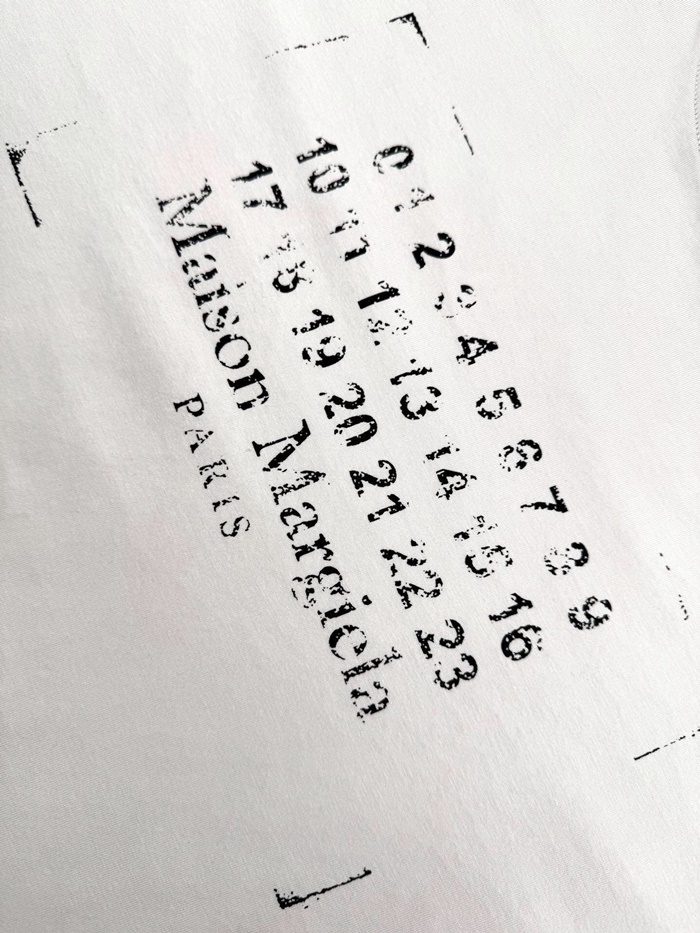 0 1 2 3 4 5 6 7 8 9
10 11 12 13 14 15 16
17 18 19 20 21 22 23
Maison Margiela
PARIS